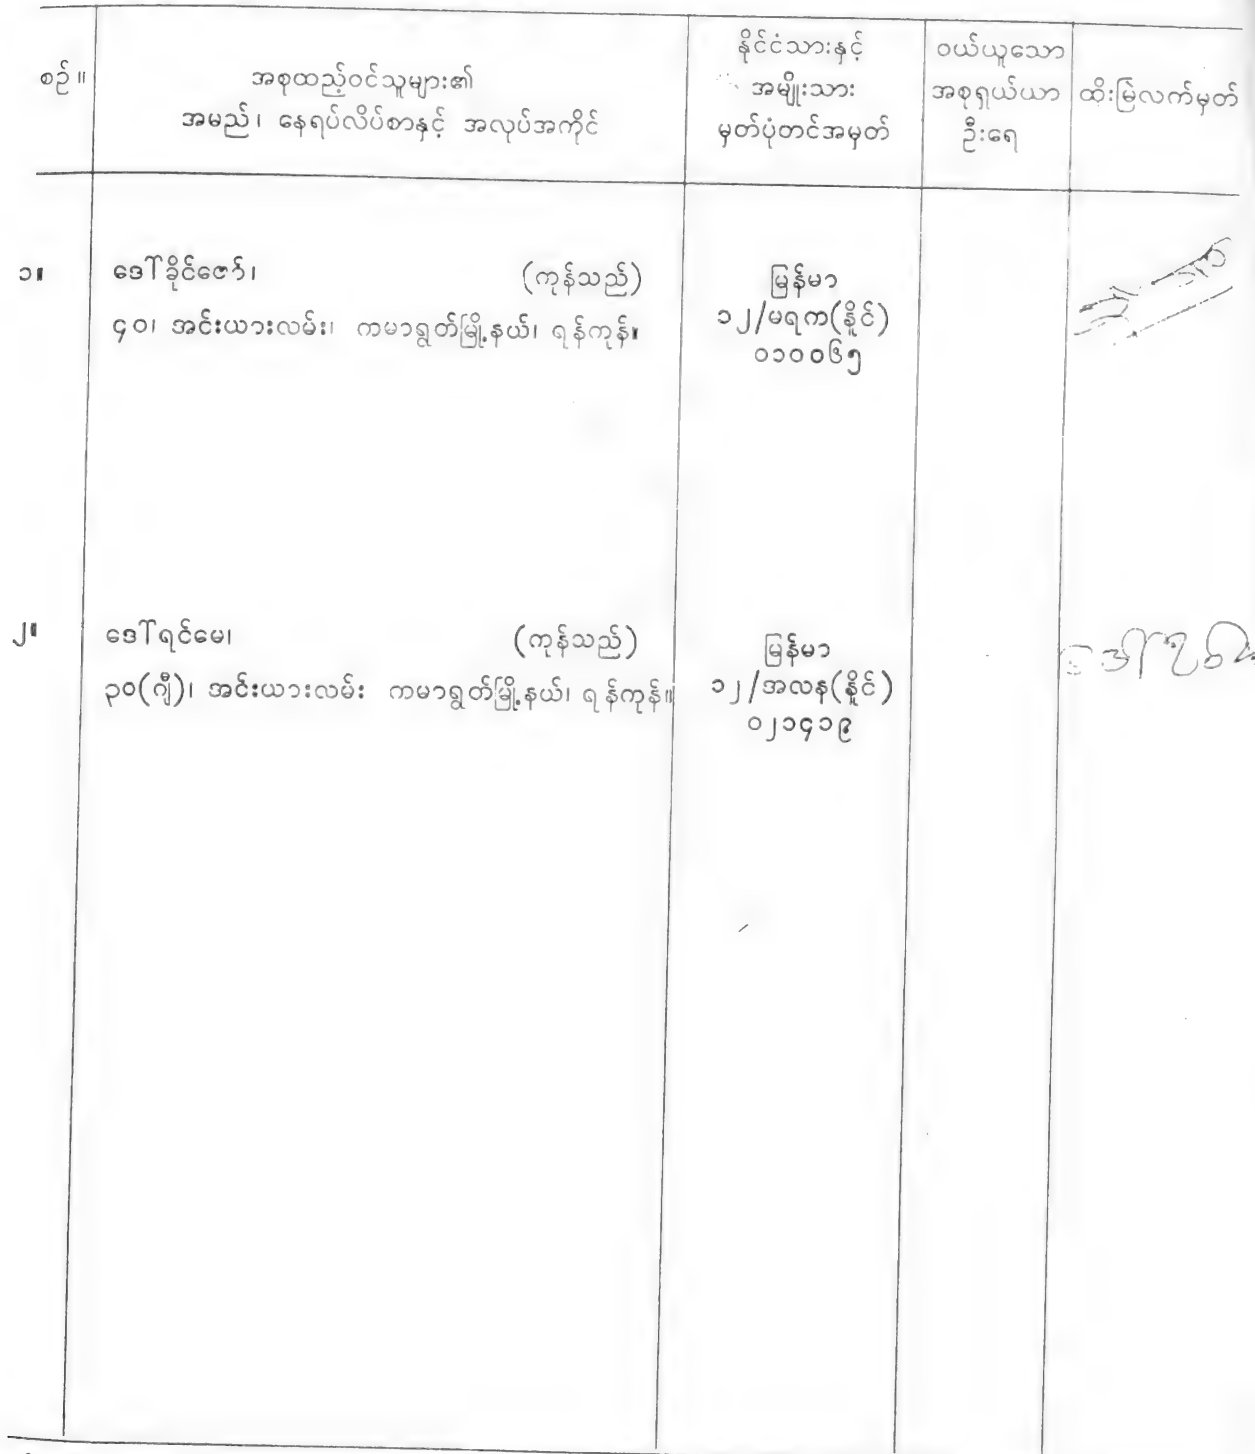 စဉ်။
အစုထည့်ဝင်သူများ၏
အမည်၊ နေရပ်လိပ်စာနှင့် အလုပ်အကိုင်
နိုင်ငံသားနှင့်
အမျိုးသား
မှတ်ပုံတင်အမှတ်
ဝယ်ယူသော
အစုရှယ်ယာ
ဦးရေ
ထိုးမြဲလက်မှတ်
၁။ ဒေါ်ခိုင်ဇော်၊ (ကုန်သည်)
၄၀၊ အင်းယားလမ်း၊ ကမာရွတ်မြို့နယ်၊ ရန်ကုန်။
မြန်မာ
၁၂/မရက(နိုင်)
၀၁၀၀၆၅
၂။ ဒေါ်ရင်မေ၊ (ကုန်သည်)
၃၀(ဂျီ)၊ အင်းယားလမ်း ကမာရွတ်မြို့နယ်၊ ရန်ကုန်။
မြန်မာ
၁၂/အလန(နိုင်)
၀၂၁၄၁၉